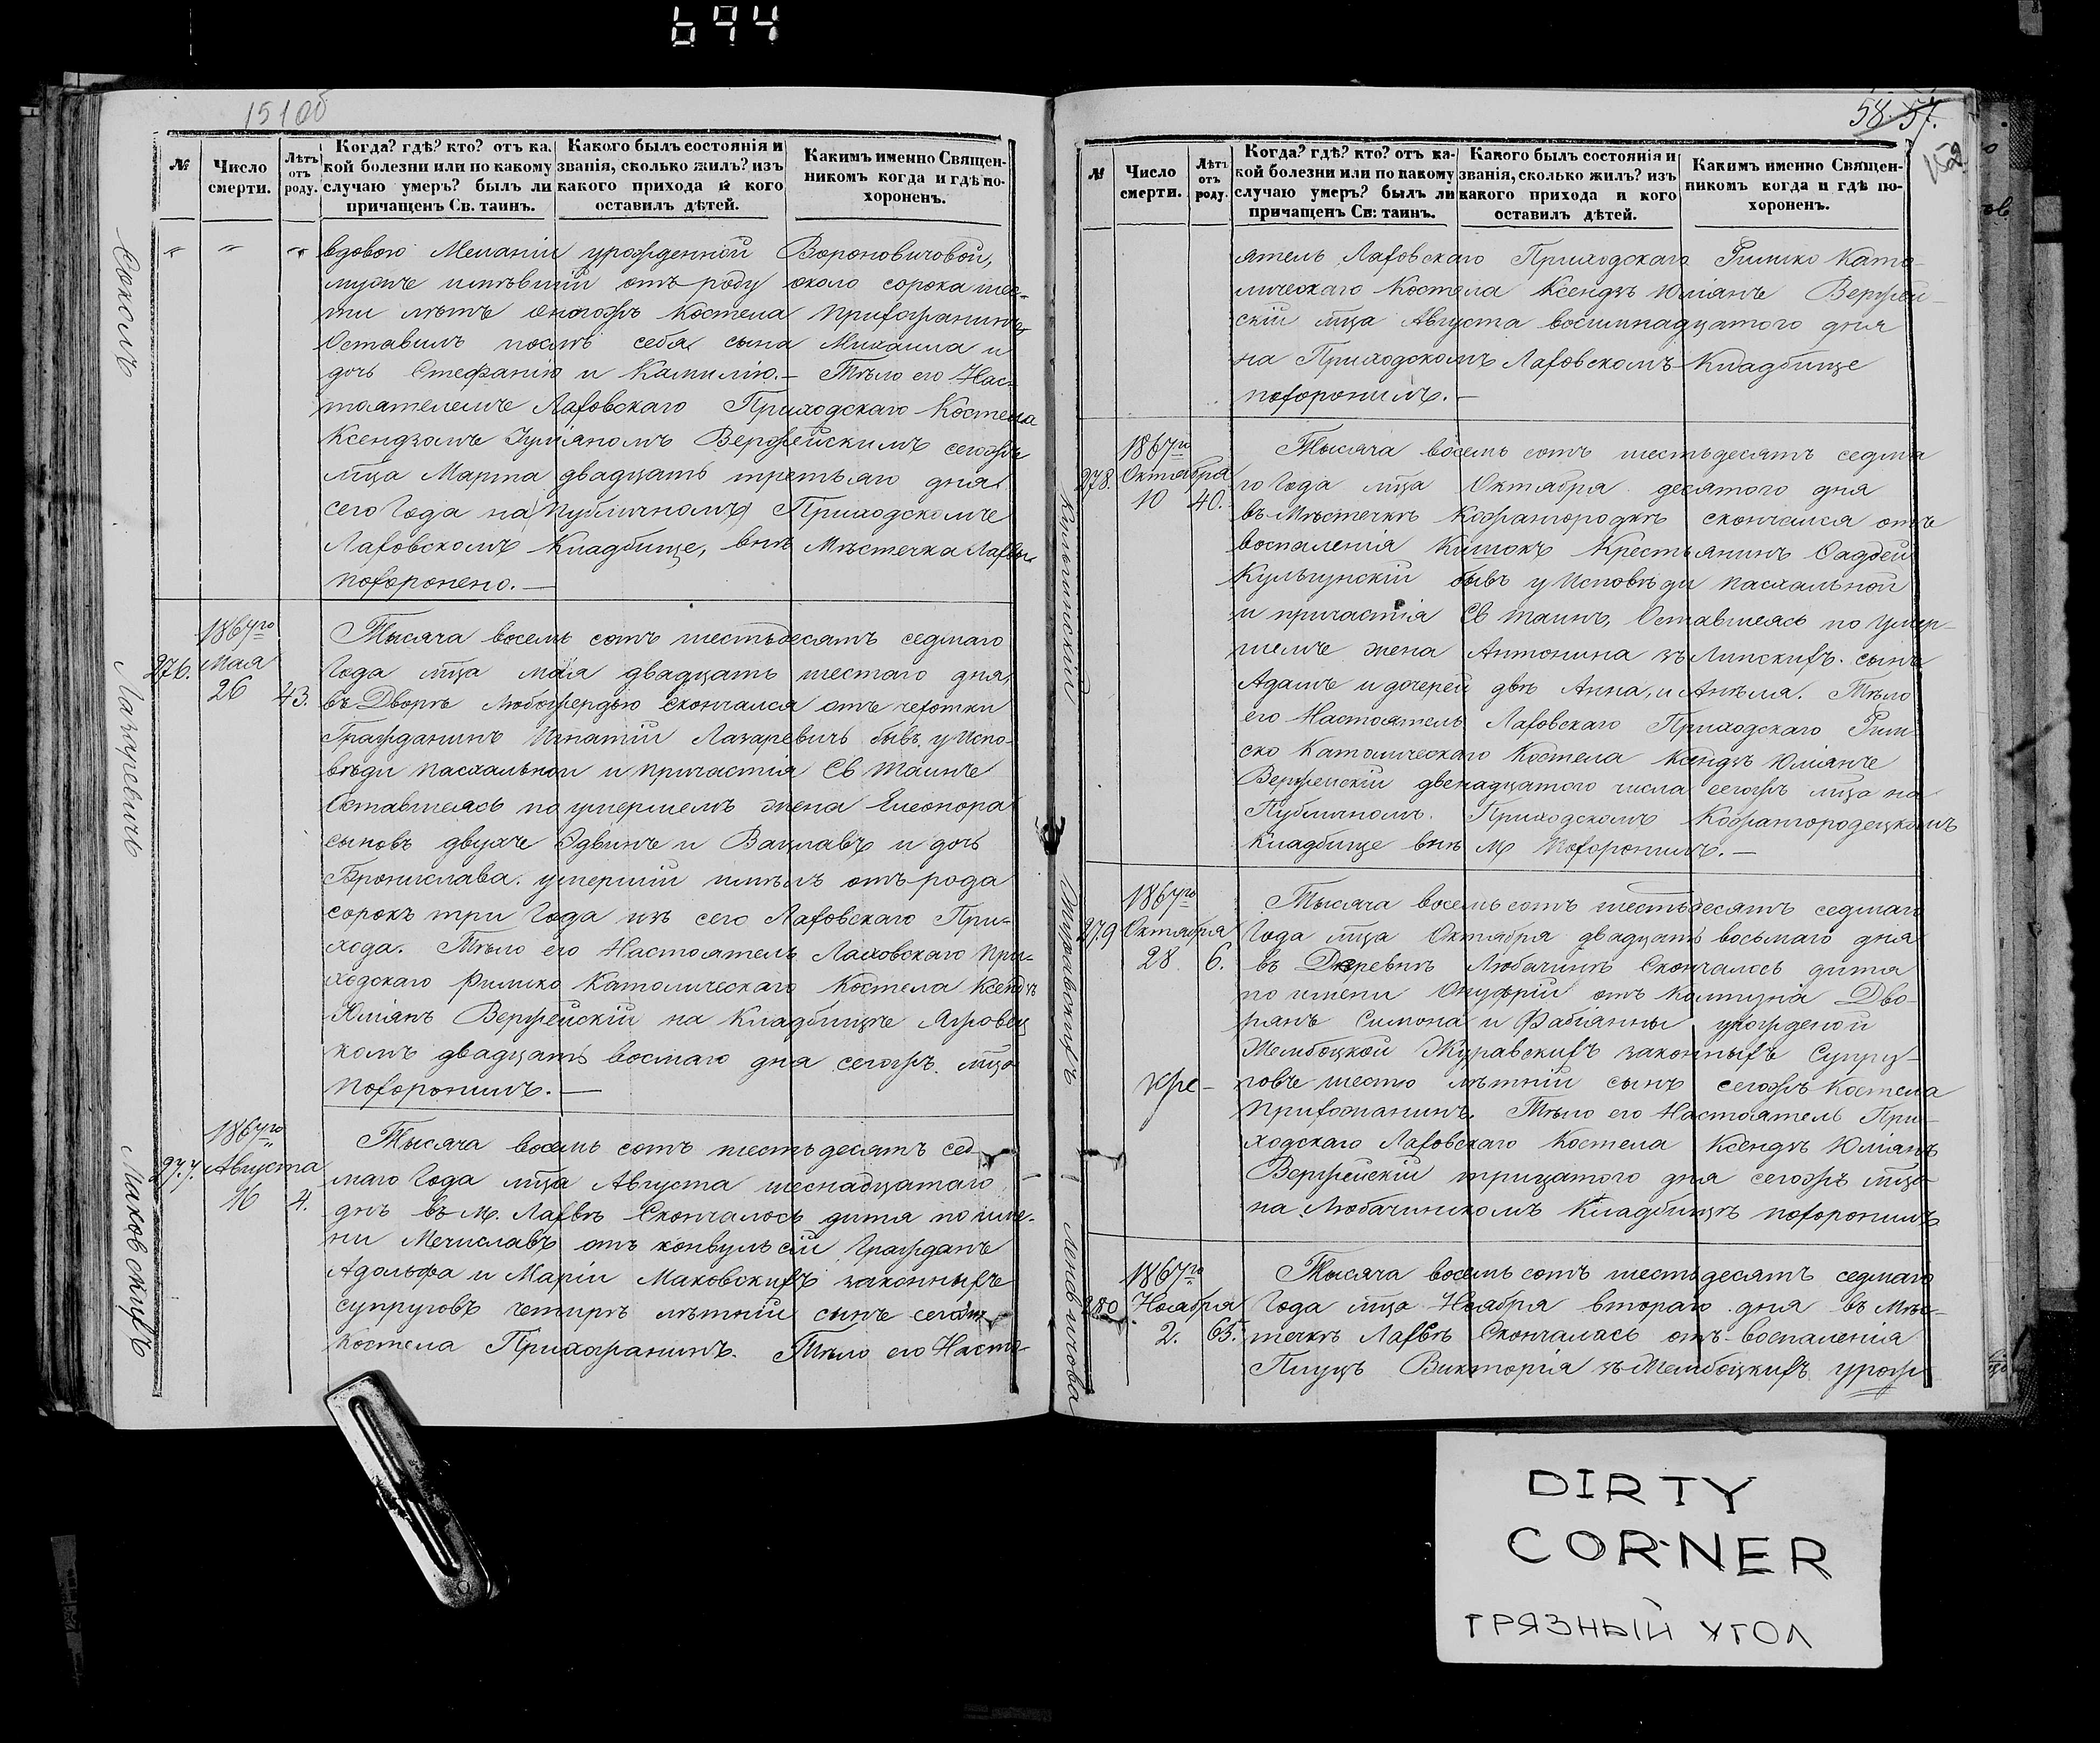 694
151 об
№
Число смерти.
Лѣтъ отъ роду.
Когда? гдѣ? кто? отъ ка-
кой болезни или по какому
случаю умеръ? былъ ли
причащенъ Св. таинъ.
Какого былъ состоянія и
званія, сколько жилъ? изъ
какого прихода и кого
оставилъ дѣтей.
Какимъ именно Священ-
никомъ когда и гдѣ по-
хороненъ.
Соколъ
вдовою Меланіи урожденной Вороновичовой,
имѣвшій отъ роду около сорока шес-
ти лѣтъ Костела прихожанинъ
Оставилъ послѣ себя сына Михаила и
дочь Стефанію и Камилію. — Тѣло его Нас-
тоятелемъ Лаховскаго Приходскаго Костела
Ксендзомъ Юліяномъ Вержейскимъ сегожъ
мца Марта двадцать третьяго дня
сего Года на Публичномъ Приходскомъ
Лаховскомъ Кладбище, внѣ Мѣстечка Лахвы
похоронено. —
Лазаревичъ
276.
1867го
Мая
26
43.
Тысяча восемь сотъ шестьдесятъ седмаго
Года мца мая двадцать шестаго дня,
въ Дворѣ скончался отъ чехотки
Гражданинъ Игнатій Лазаревичъ бывъ у Испо-
вѣди пасхальной и причастія Св Таинъ
Оставшеяся по умершемъ жена Елеонора
сыновъ двухъ Эдвинъ и Вацлавъ и дочь
Бронислава. умершій имѣлъ отъ рода
сорокъ три Года изъ сего Лаховскаго При-
хода. Тѣло его Настоятель Лаховскаго При-
ходскаго Римско Католическаго Костела Ксендзъ
Юліянъ Вержейскій на Кладбищѣ
комъ двадцать восмаго дня сегожъ мца
похоронилъ. —
Маховскихъ
277.
1867го
Августа
16
4.
Тысяча восемь сотъ шестьдесятъ сед-
маго Года мца Августа шеснадцатаго
днѣ въ м. Лахвѣ Скончалось дитя по име-
ни Мечиславъ отъ конвульсіи Гражданъ
Адольфа и Маріи Маковскихъ законныхъ
супруговъ четирѣ лѣтній сынъ сегожъ
Костела Прихожанинъ. Тѣло его Насто-
58. 57.
152
№
Число смерти.
Лѣтъ отъ роду.
Когда? гдѣ? кто? отъ ка-
кой болезни или по какому
случаю умеръ? былъ ли
причащенъ Св: таинъ.
Какого былъ состоянія и
званія, сколько жилъ? изъ
какого прихода и кого
оставилъ дѣтей.
Какимъ именно Священ-
никомъ когда и гдѣ по-
хороненъ.
ятель Лаховскаго Приходскаго Римско Като-
лическаго Костела Ксендзъ Юліянъ Вержей-
скій мца Августа восимнадцатого дня
на Приходскомъ Лаховскомъ Кладбище
похоронилъ. —
278.
1867го
Октября
10
40.
Тысяча восемь сотъ шестьдесятъ седма
го Года мца Октября десятого дня
въ Мѣстечкѣ Кожангородкѣ скончался отъ
воспаленія Кишокъ Крестьянинъ Фаддей
Кульгунскій бывъ у Исповѣди пасхальной
и причастія Св таинъ, Оставшеяся по умер-
шемъ жена Антонина зъ Липскихъ. сынъ
Адамъ и дочерей двѣ Анна, и Анѣля. Тѣло
его Настоятель Лаховскаго Приходскаго Рим-
ско Католическаго Костела Ксендзъ Юліянъ
Вержейскій двенадцатого числа сегожъ мца на
Публичномъ Приходскомъ Кожангородецкомъ
Кладбище внѣ М похоронилъ. —
Журавскихъ
279
1867го
Октября
28
6.
кре-
Тысяча восемь сотъ шестьдесятъ седмаго
Года мца Октября двадцать восьмаго дня
въ Деревнѣ Любачинѣ Скончалось дитя
по имени Онуфрій отъ Двo-
рянъ Симона и Фабіанны урожденой
Жембоцкой Журавскихъ законныхъ Супру-
говъ шесто лѣтній сынъ сегожъ Костела
прихожанинъ. Тѣло его Настоятель При-
ходскаго Лаховскаго Костела Ксендзъ Юліянъ
Вержейскій трицатого дня сегожъ мца
на Любачинскомъ Кладбищѣ похоронилъ
280
1867го
Ноября
2.
65.
Тысяча восемь сотъ шестьдесятъ седмаго
Года мца Ноября втораго дня въ Мѣс-
течкѣ Лахвѣ Скончалась отъ воспаленія
Плуцъ Викторія зъ Жембоцкихъ урож-
DIRTY
CORNER
ГРЯЗНЫЙ УГОЛ